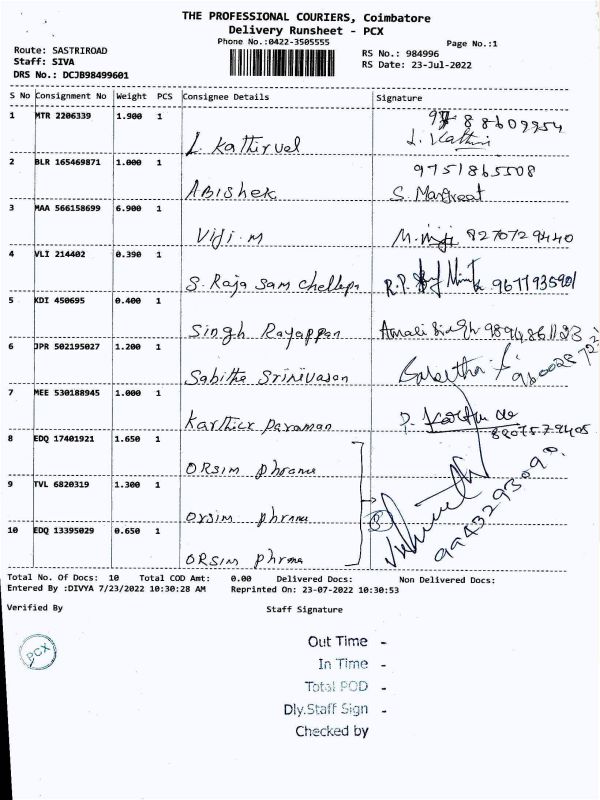 THE PROFESSIONAL COURIERS, Coimbatore
Delivery Runsheet - PCX
Phone No.:0422-3505555
Page No.:1
Route: SASTRIROAD
Staff: SIVA
DRS No.: DCJB98499601
RS No.: 984996
RS Date: 23-Jul-2022
S No Consignment No Weight PCS Consignee Details Signature
1 MTR 2206339 1.900 1
L. Kathirvel L. Kathir
2 BLR 165469871 1.000 1 9751865508
Abishek S. Margreat
3 MAA 566158699 6.900 1
Viji.m M. 8270729440
4 VLI 214402 0.390 1
S. Raja Sam Chellapa R.P. 9677935901
5 KDI 450695 0.400 1
Singh Rayappan Amali Singh 9894861123
6 JPR 502195027 1.200 1
Sabitha Srinivasan Sabitha
7 MEE 530188945 1.000 1
Karthick Paraman P. 8807579405
8 EDQ 17401921 1.650 1
ORSIM Phrama
9 TVL 6820319 1.300 1
Orsim Phrma
10 EDQ 13395029 0.650 1
ORSIM Phrma
Total No. Of Docs: 10 Total COD Amt: 0.00 Delivered Docs: Non Delivered Docs:
Entered By :DIVYA 7/23/2022 10:30:28 AM Reprinted On: 23-07-2022 10:30:53
Verified By Staff Signature
PCX
Out Time -
In Time -
Total POD -
Dly.Staff Sign -
Checked by